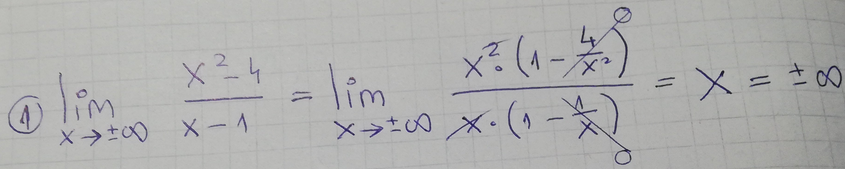 ① lim x→±∞ (x² - 4)/(x - 1) = lim x→±∞ (x² · (1 - 4/x²))/(x · (1 - 1/x)) = x = ±∞